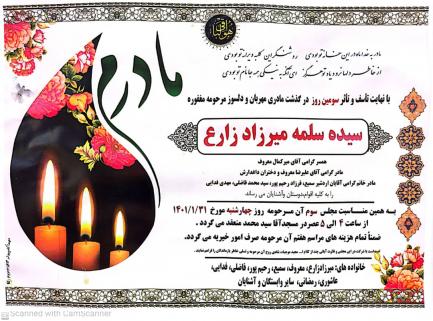 هوالباقی
مادرم
مادر به خدا ماه در این خانه تو بودی
روشنگر این کلبه ویرانه تو بودی
از خاطر
ای آنکه به نیکی همه جا نام تو بودی
با نهایت تأسف و تأثر سومین روز در گذشت مادری مهربان و دلسوز مرحومه مغفوره
سیده سلمه میرزاد زارع
همسر گرامی آقای میرکمال معروف
مادر گرامی آقای علیرضا معروف و دختران داغدارتش
مادر خانم گرامی آقایان اردشیر سمیع، فرزاد رحیم پور، سید محمد فاضلی، مهدی فدایی
را به کلیه اقوام،دوستان وآشنایان می رساند.
به همین مناسبت مجلس سوم آن مرحومه روز چهارشنبه مورخ ۱۴۰۱/۱/۳۱
از ساعت ۴ الی ۵ عصردر مسجدآقا سید محمد منعقد می گردد.
ضمناً تمام هزینه های مراسم هفتم آن مرحومه صرف امور خیریه می گردد.
خانواده های: میرزادزارع، معروف، سمیع، رحیم پور، فاضلی، فدایی،
عاشوری، رمضانی، سایر وابستگان و آشنایان
Scanned with CamScanner